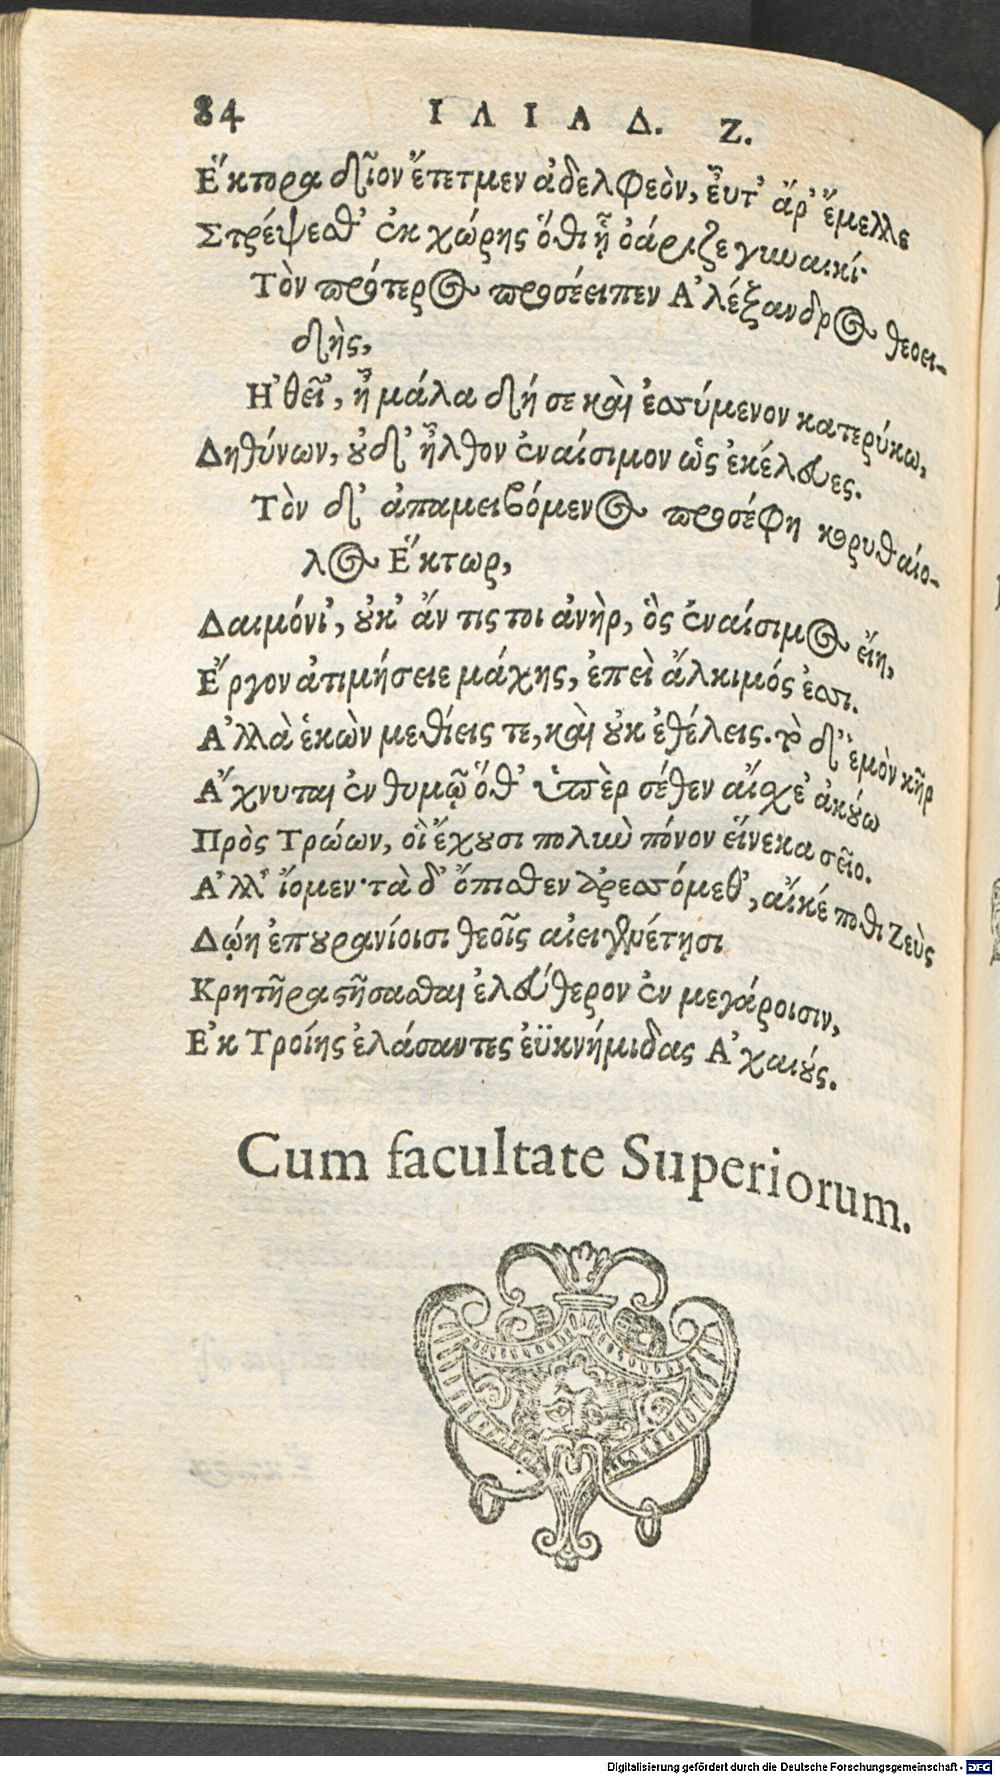 84 ΙΛΙΑΔ. Ζ.
Ἕκτορα δῖον ἔτετμεν ἀδελφεὸν, εὖτ' ἄρ' ἔμελλε
Στρέψεσθ' ἐκ χώρης ὅθι ᾗ ὀάριζε γυναικί·
Τὸν πρότερος προσέειπεν Ἀλέξανδρος θεοει-
δὴς,
Ἠθεῖ', ἦ μάλα δή σε καὶ ἐσσύμενον κατερύκω,
Δηθύνων, οὐδ' ἦλθον ἐναίσιμον ὡς ἐκέλευες.
Τὸν δ' ἀπαμειβόμενος προσέφη κορυθαίο-
λος Ἕκτωρ,
Δαιμόνι', οὐκ' ἄν τις τοι ἀνὴρ, ὃς ἐναίσιμος εἴη,
Ἔργον ἀτιμήσειε μάχης, ἐπεὶ ἄλκιμός ἐσσι.
Ἀλλὰ ἑκὼν μεθίεις τε, καὶ οὐκ ἐθέλεις. τὸ δ' ἐμὸν κῆρ
Ἄχνυται ἐν θυμῷ ὅθ' ὑπὲρ σέθεν αἴσχε' ἀκούω
Πρὸς Τρώων, οἳ ἔχουσι πολὺν πόνον εἵνεκα σεῖο.
Ἀλλ' ἴομεν· τὰ δ' ὄπισθεν ἀρεσσόμεθ', αἴκέ ποθι Ζεὺς
Δώῃ ἐπουρανίοισι θεοῖς αἰειγενέτῃσι
Κρητῆρα στήσασθαι ἐλεύθερον ἐν μεγάροισιν,
Ἐκ Τροίης ἐλάσαντες ἐϋκνήμιδας Ἀχαιούς.
Cum facultate Superiorum.
Digitalisierung gefördert durch die Deutsche Forschungsgemeinschaft - DFG